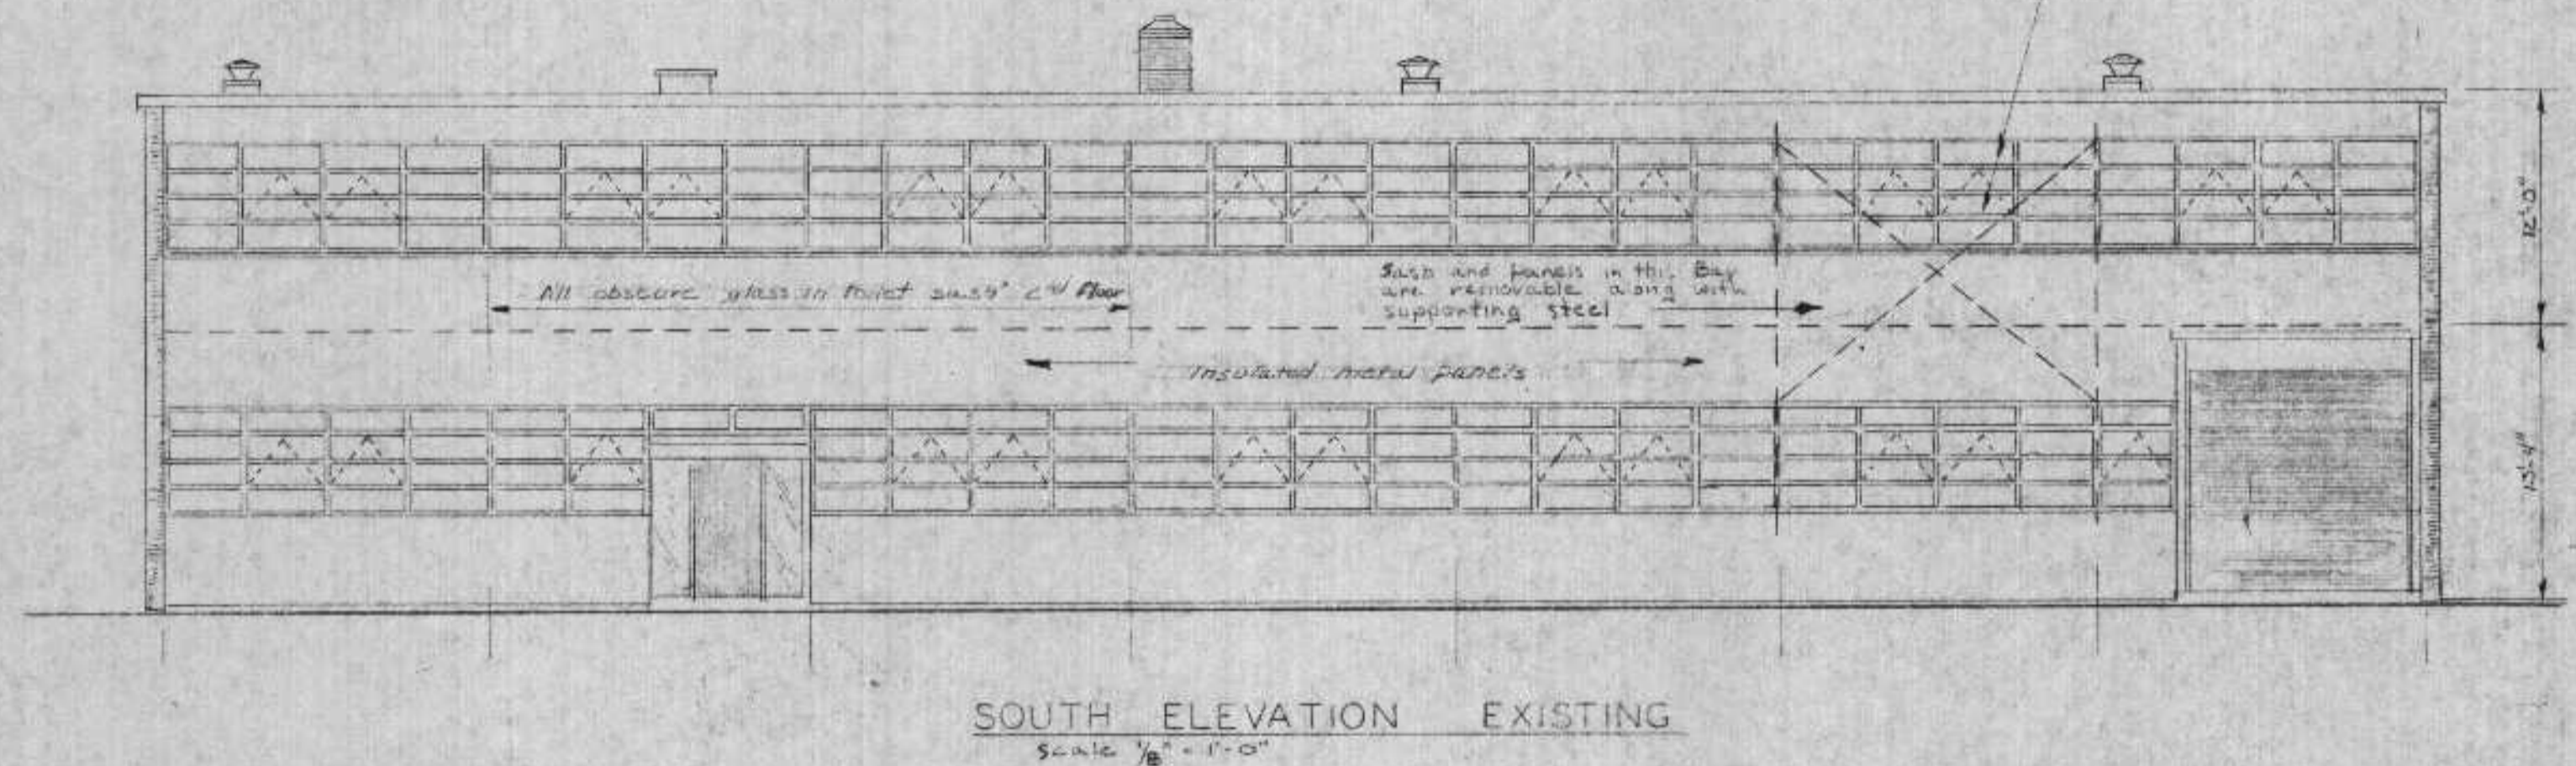 12'-0"
All obscure glass in toilet sash 2nd Floor
Sash and panels in this Bay
are removable along with
supporting steel
Insulated metal panels
13'-4"
SOUTH ELEVATION EXISTING
Scale 1/8" = 1'-0"